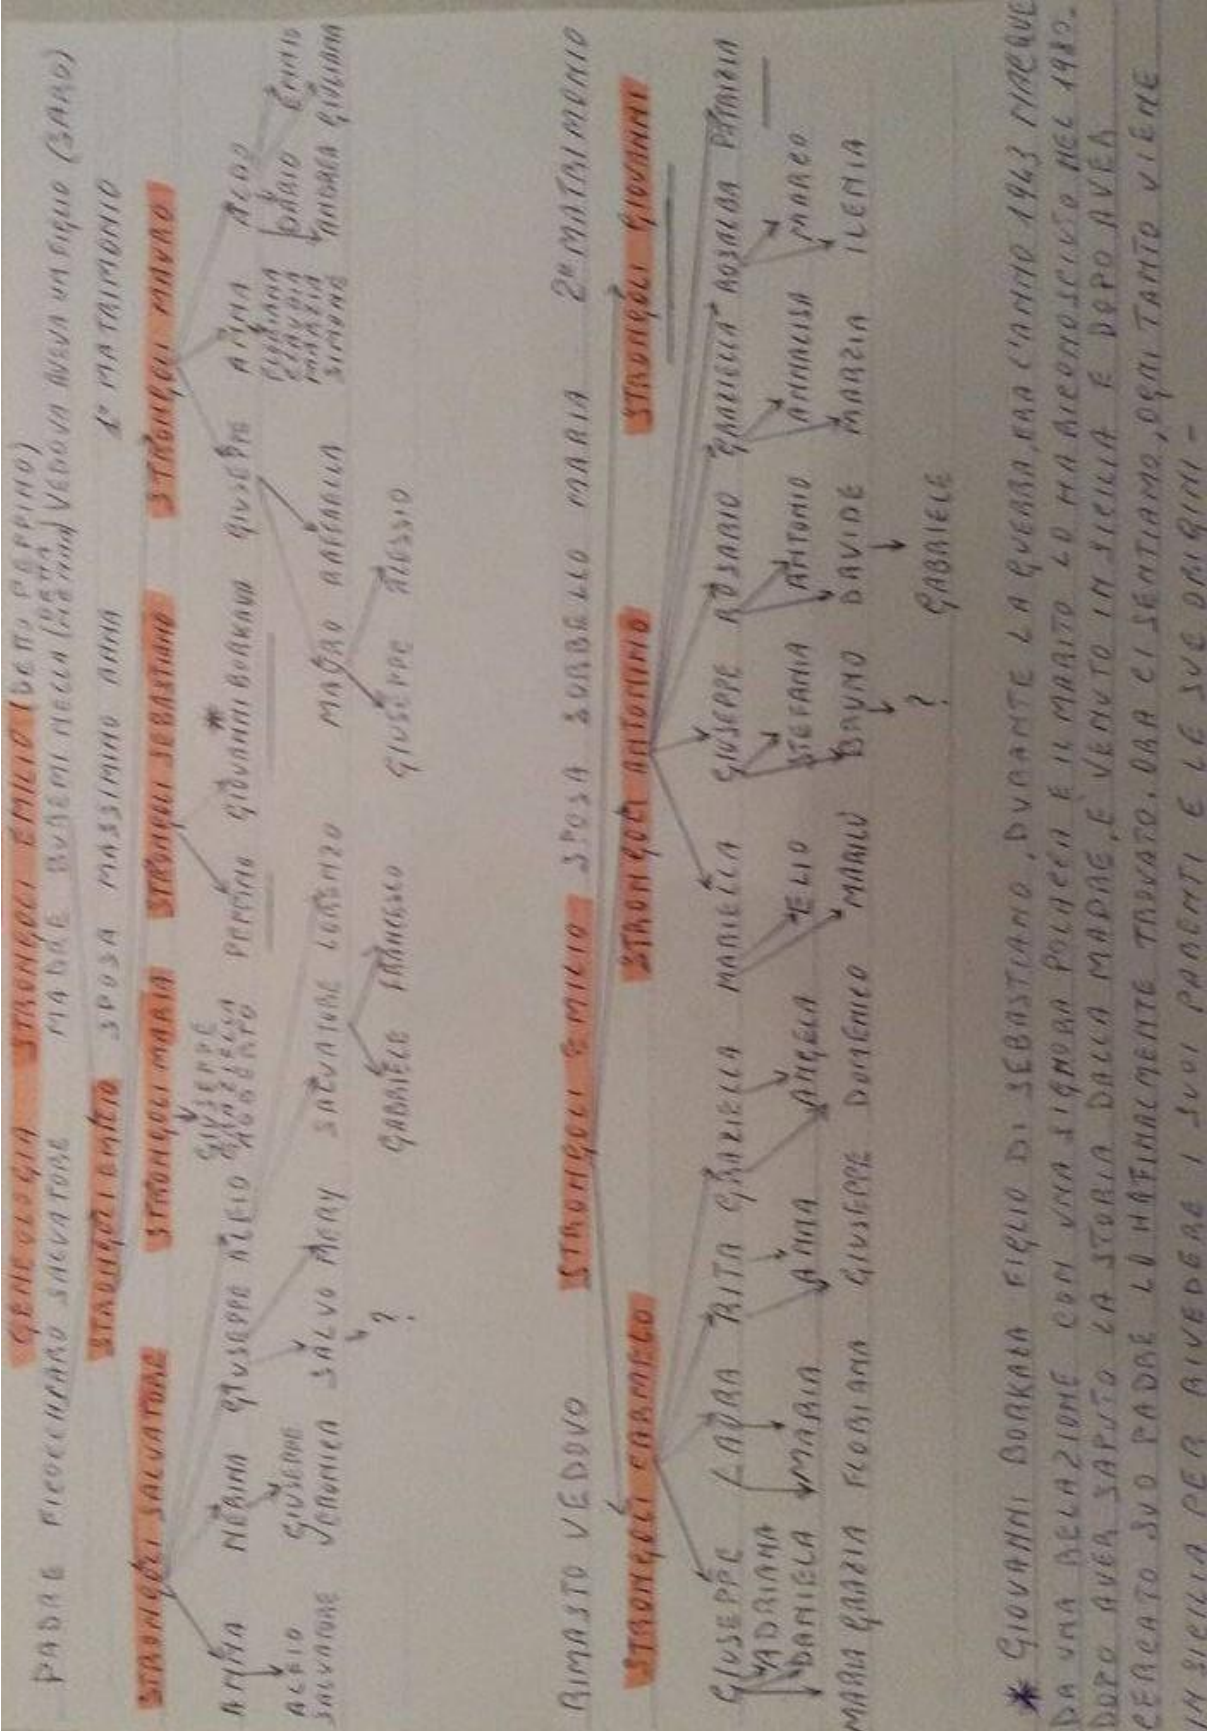 GENEOLOGIA STRONGOLI EMILIO (DETTO PEPPINO)
PADRE SALVATORE MADRE BUBEMI NELLA VEDOVA AVEVA UN FIGLIO (SARO)
STRONGOLI EMILIO SPOSA MASSIMINO ANNA 1° MATRIMONIO
STRONGOLI SALVATORE STRONGOLI MARIA STRONGOLI SEBASTIANO STRONGOLI MAURO
GIUSEPPE
GRAZIELLA
ROBERTO
ANNA NERINA GIUSEPPE ALFIO PEPPINO GIOVANNI BORKALA * GIUSEPPE ANNA ALDO
ALFIO GIUSEPPE FLORIANA DARIO ENNIO
SALVATORE VERONICA CLAUDIA ANDREA GIULIANA
MARZIA
SIMONE
SALVO MERY SALVATORE LORENZO MAURO RAFFAELLA
?
GABRIELE FRANCESCO GIUSEPPE ALESSIO
RIMASTO VEDOVO STRONGOLI EMILIO SPOSA SORBELLO MARIA 2° MATRIMONIO
STRONGOLI CARMELO STRONGOLI ANTONINO STRONGOLI GIOVANNI
GIUSEPPE LAURA RITA GRAZIELLA MARIELLA GIUSEPPE ROSARIO GRAZIELLA ROSALBA PATRIZIA
ADRIANA
DANIELA MARIA ANNA ANGELA ELIO STEFANIA ANTONIO ANNALISA MARCO
MARIA GRAZIA FLORIANA GIUSEPPE DOMENICO MARILÙ BRUNO DAVIDE MARZIA ILENIA
?
GABRIELE
* GIOVANNI BORKALA FIGLIO DI SEBASTIANO, DURANTE LA GUERRA, ERA L'ANNO 1943 NACQUE
DA UNA RELAZIONE CON UNA SIGNORA POLACCA E IL MARITO LO HA RICONOSCIUTO NEL 1980.
DOPO AVER SAPUTO LA STORIA DALLA MADRE, È VENUTO IN SICILIA E DOPO AVER
CERCATO SUO PADRE LO HA FINALMENTE TROVATO. ORA CI SENTIAMO, OGNI TANTO VIENE
IN SICILIA PER RIVEDERE I SUOI PARENTI E LE SUE ORIGINI -